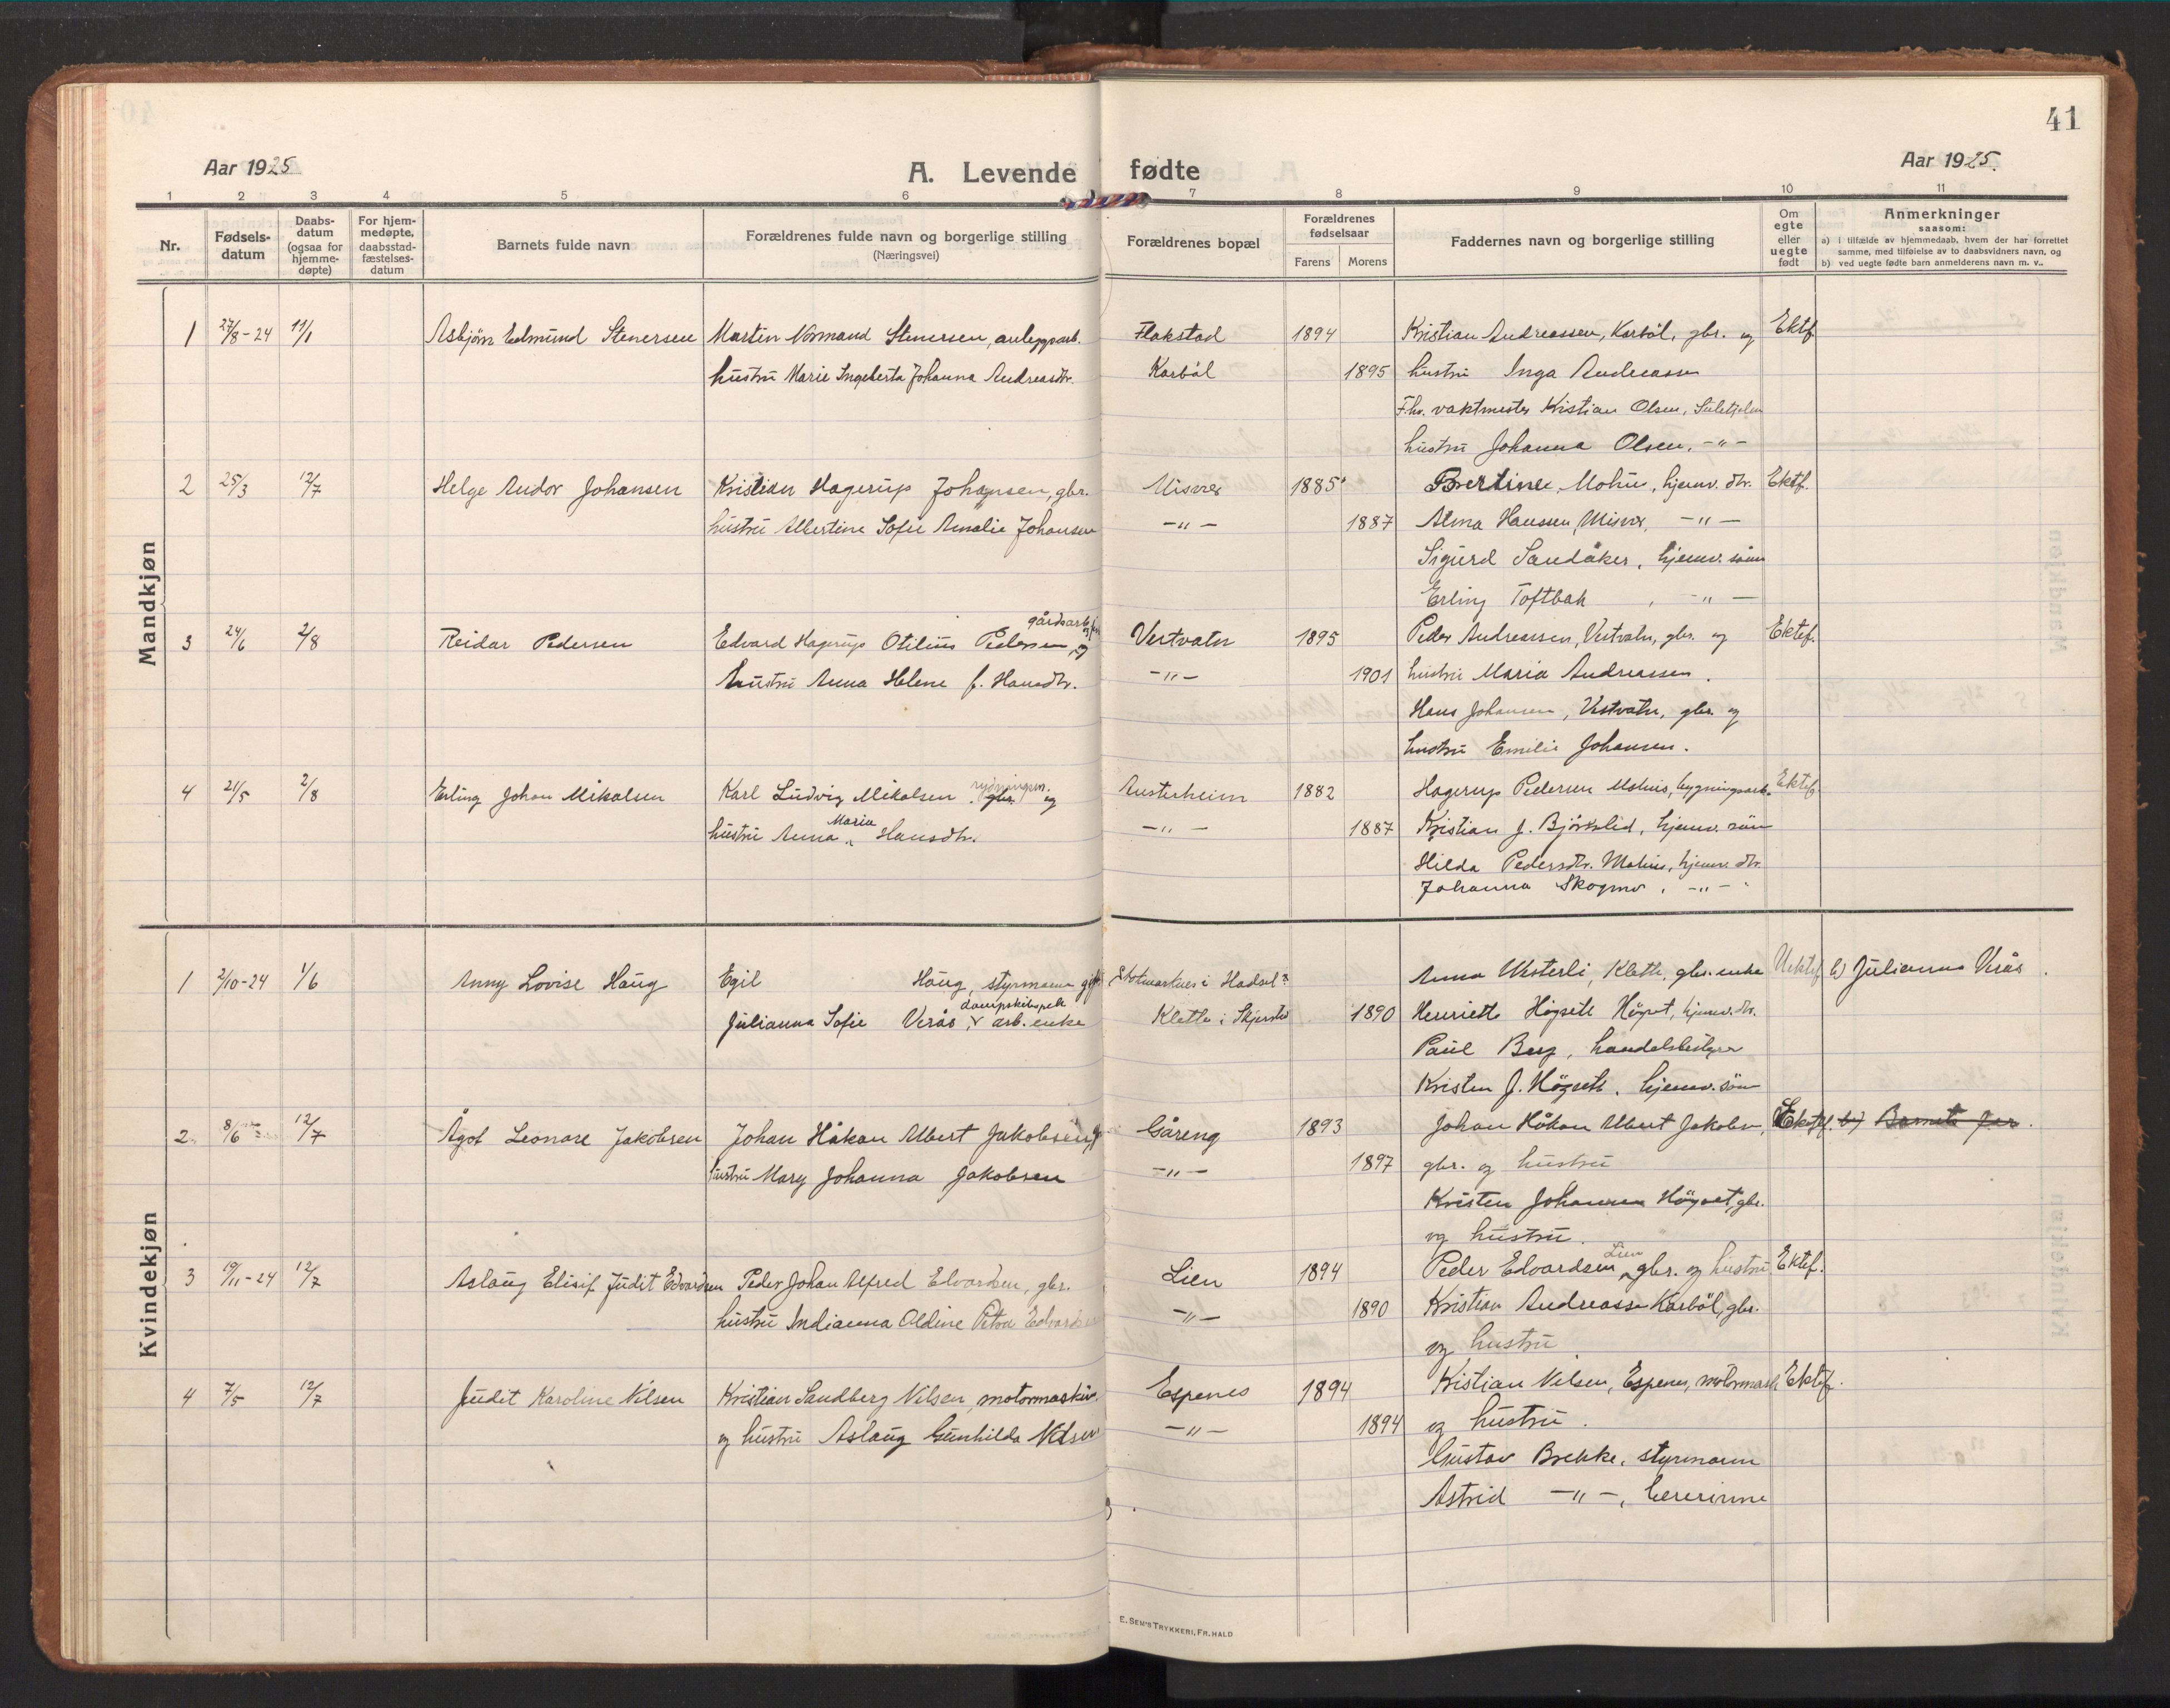 41
Aar 1925
A. Levende fødte
Aar 1925.
1 2 3 4 5 6 7 8 9 10 11
Nr.
Fødsels-
datum
Daabs-
datum
(ogsaa for
hjemme-
døpte)
For hjem-
medøpte,
daabsstad-
fæstelses-
datum
Barnets fulde navn
Forældrenes fulde navn og borgerlige stilling
(Næringsvei)
Forældrenes bopæl
Forældrenes
fødselsaar
Farens Morens
Faddernes navn og borgerlige stilling
Om
egte
eller
uegte
født
Anmerkninger
saasom:
a) i tilfælde av hjemmedaab, hvem der har forrettet
samme, med tilføielse av to daabsvidners navn, og
b) ved uegte fødte barn anmelderens navn m. v..
Mandkjøn
1 27/8-24 11/1 Asbjørn Edmund Stenersen Martin Normand Stenersen, anleggsarb. Flakstad 1894 Kristian Andreassen, Karbøl, gbr. og Ektf.
hustru Marie Ingeberta Johanna Andreasdtr. Karbøl 1895 hustru Inga Andreassen
Fhv. vaktmester Kristian Olsen, Sulitjelma
hustru Johanna Olsen, -"-
2 25/3 12/7 Helge Andor Johansen Kristian Hagerup Johansen, gbr. Misvær 1885 Bertine Mohus, hjemv. dtr. Ektf.
hustru Albertine Sofie Amalie Johansen -"- 1887 Alma Hanssen, Misvær, -"-
Sigurd Sandåker, hjemv. sønn
Erling Toftbak, -"-
gårdsarb.
3 24/6 2/8 Reidar Pedersen Edvard Hagerup Otilius Pedersen, og Vestvatn 1895 Peder Andreassen, Vestvatn, gbr. og Ektef.
hustru Anna Helene f. Hansdtr. -"- 1901 hustru Maria Andreassen.
Hans Johansen, Vestvatn, gbr. og
hustru Emilie Johansen.
4 21/5 2/8 Erling Johan Mikalsen Karl Ludvig Mikalsen rydningsm. gbr. og Austerheim 1882 Hagerup Pedersen Mohus, bygningsarb. Ektef.
hustru Anna Maria Hansdtr. -"- 1887 Kristian J. Bjørklid, hjemv. sønn
Hilda Pedersdtr. Mohus, hjemv. dtr.
Johanna Skogmo, -"-
Kvindekjøn
1 2/10-24 1/6 Anny Lovise Haug Egil Haug, styrmann gift Stokmarknes i Hadsel? Anna Westerli, Klette, gbr. enke Uektef b) Julianna Verås.
dampskibseksp.
Julianna Sofie Verås, arb. enke Klette i Skjerstad 1890 Henriette Høgseth Høgset, hjemv. dtr.
Paul Berg, handelsbestyrer
Kristen J. Høgseth, hjemv. sønn
2 8/6 12/7 Ågot Leonare Jakobsen Johan Håkan Albert Jakobsen, Gåreng 1893 Johan Håkon Albert Jakobsen, Ektef. b) Barnets far.
hustru Mary Johanna Jakobsen -"- 1897 gbr. og hustru
Kristen Johansen Høgset, gbr.
og hustru.
3 19/11-24 12/7 Aslaug Elisif Judit Edvardsen Peder Johan Alfred Edvardsen, gbr. Lien 1894 Peder Edvardsen Lien gbr. og hustru Ektef.
hustru Indianna Oldine Petra Edvardsen -"- 1890 Kristian Andreassen Karbøl, gbr.
og hustru
4 7/5 12/7 Judit Karoline Nilsen Kristian Sandberg Nilsen, motormaskin. Espenes 1894 Kristian Nilsen, Espenes, motormask. Ektef.
og hustru Aslaug Gunhilda Nilsen -"- 1894 og hustru.
Gustav Brekke, styrmann
Astrid -"-, lærerinne
E. SEM'S TRYKKERI, FR.HALD